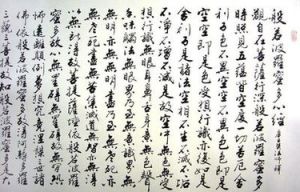 般若波羅蜜多心經
觀自在菩薩行深般若波羅蜜多
時照見五蘊皆空度一切苦厄
舍利子色不異空空不異色色即是
空空即是色受想行識亦復如是
舍利子是諸法空相不生不滅不
垢不淨不增不減是故空中無色無受
想行識無眼耳鼻舌身意無色聲
香味觸法無眼界乃至無意識界
無無明亦無無明盡乃至無老死亦
無老死盡無苦集滅道無智亦無得
以無所得故菩提薩埵依般若波羅
蜜多故心無罣礙無罣礙故無有恐
怖遠離顛倒夢想究竟涅槃三世諸
佛依般若波羅蜜多故得阿耨多羅
三藐三菩提故知般若波羅蜜多是大